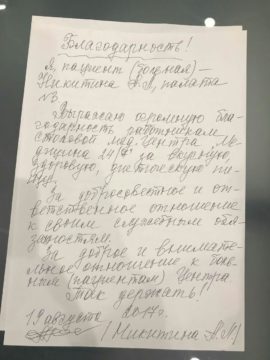 Благодарность!
Я, пациент (больная) –
Никитина А.Л, палата
№3
Выражаю огромную бла-
годарность работникам
столовой мед. центра „Ме-
дицина 24/7" за вкусную,
здоровую, диетическую пи-
щу.
За добросовестное и от-
ветственное отношение
к своим служебным обя-
занностям.
За доброе и внимате-
льное отношение к боль-
ным (пациентам) Центра
Так держать!
19 августа 2017г.
/Никитина А.Л/